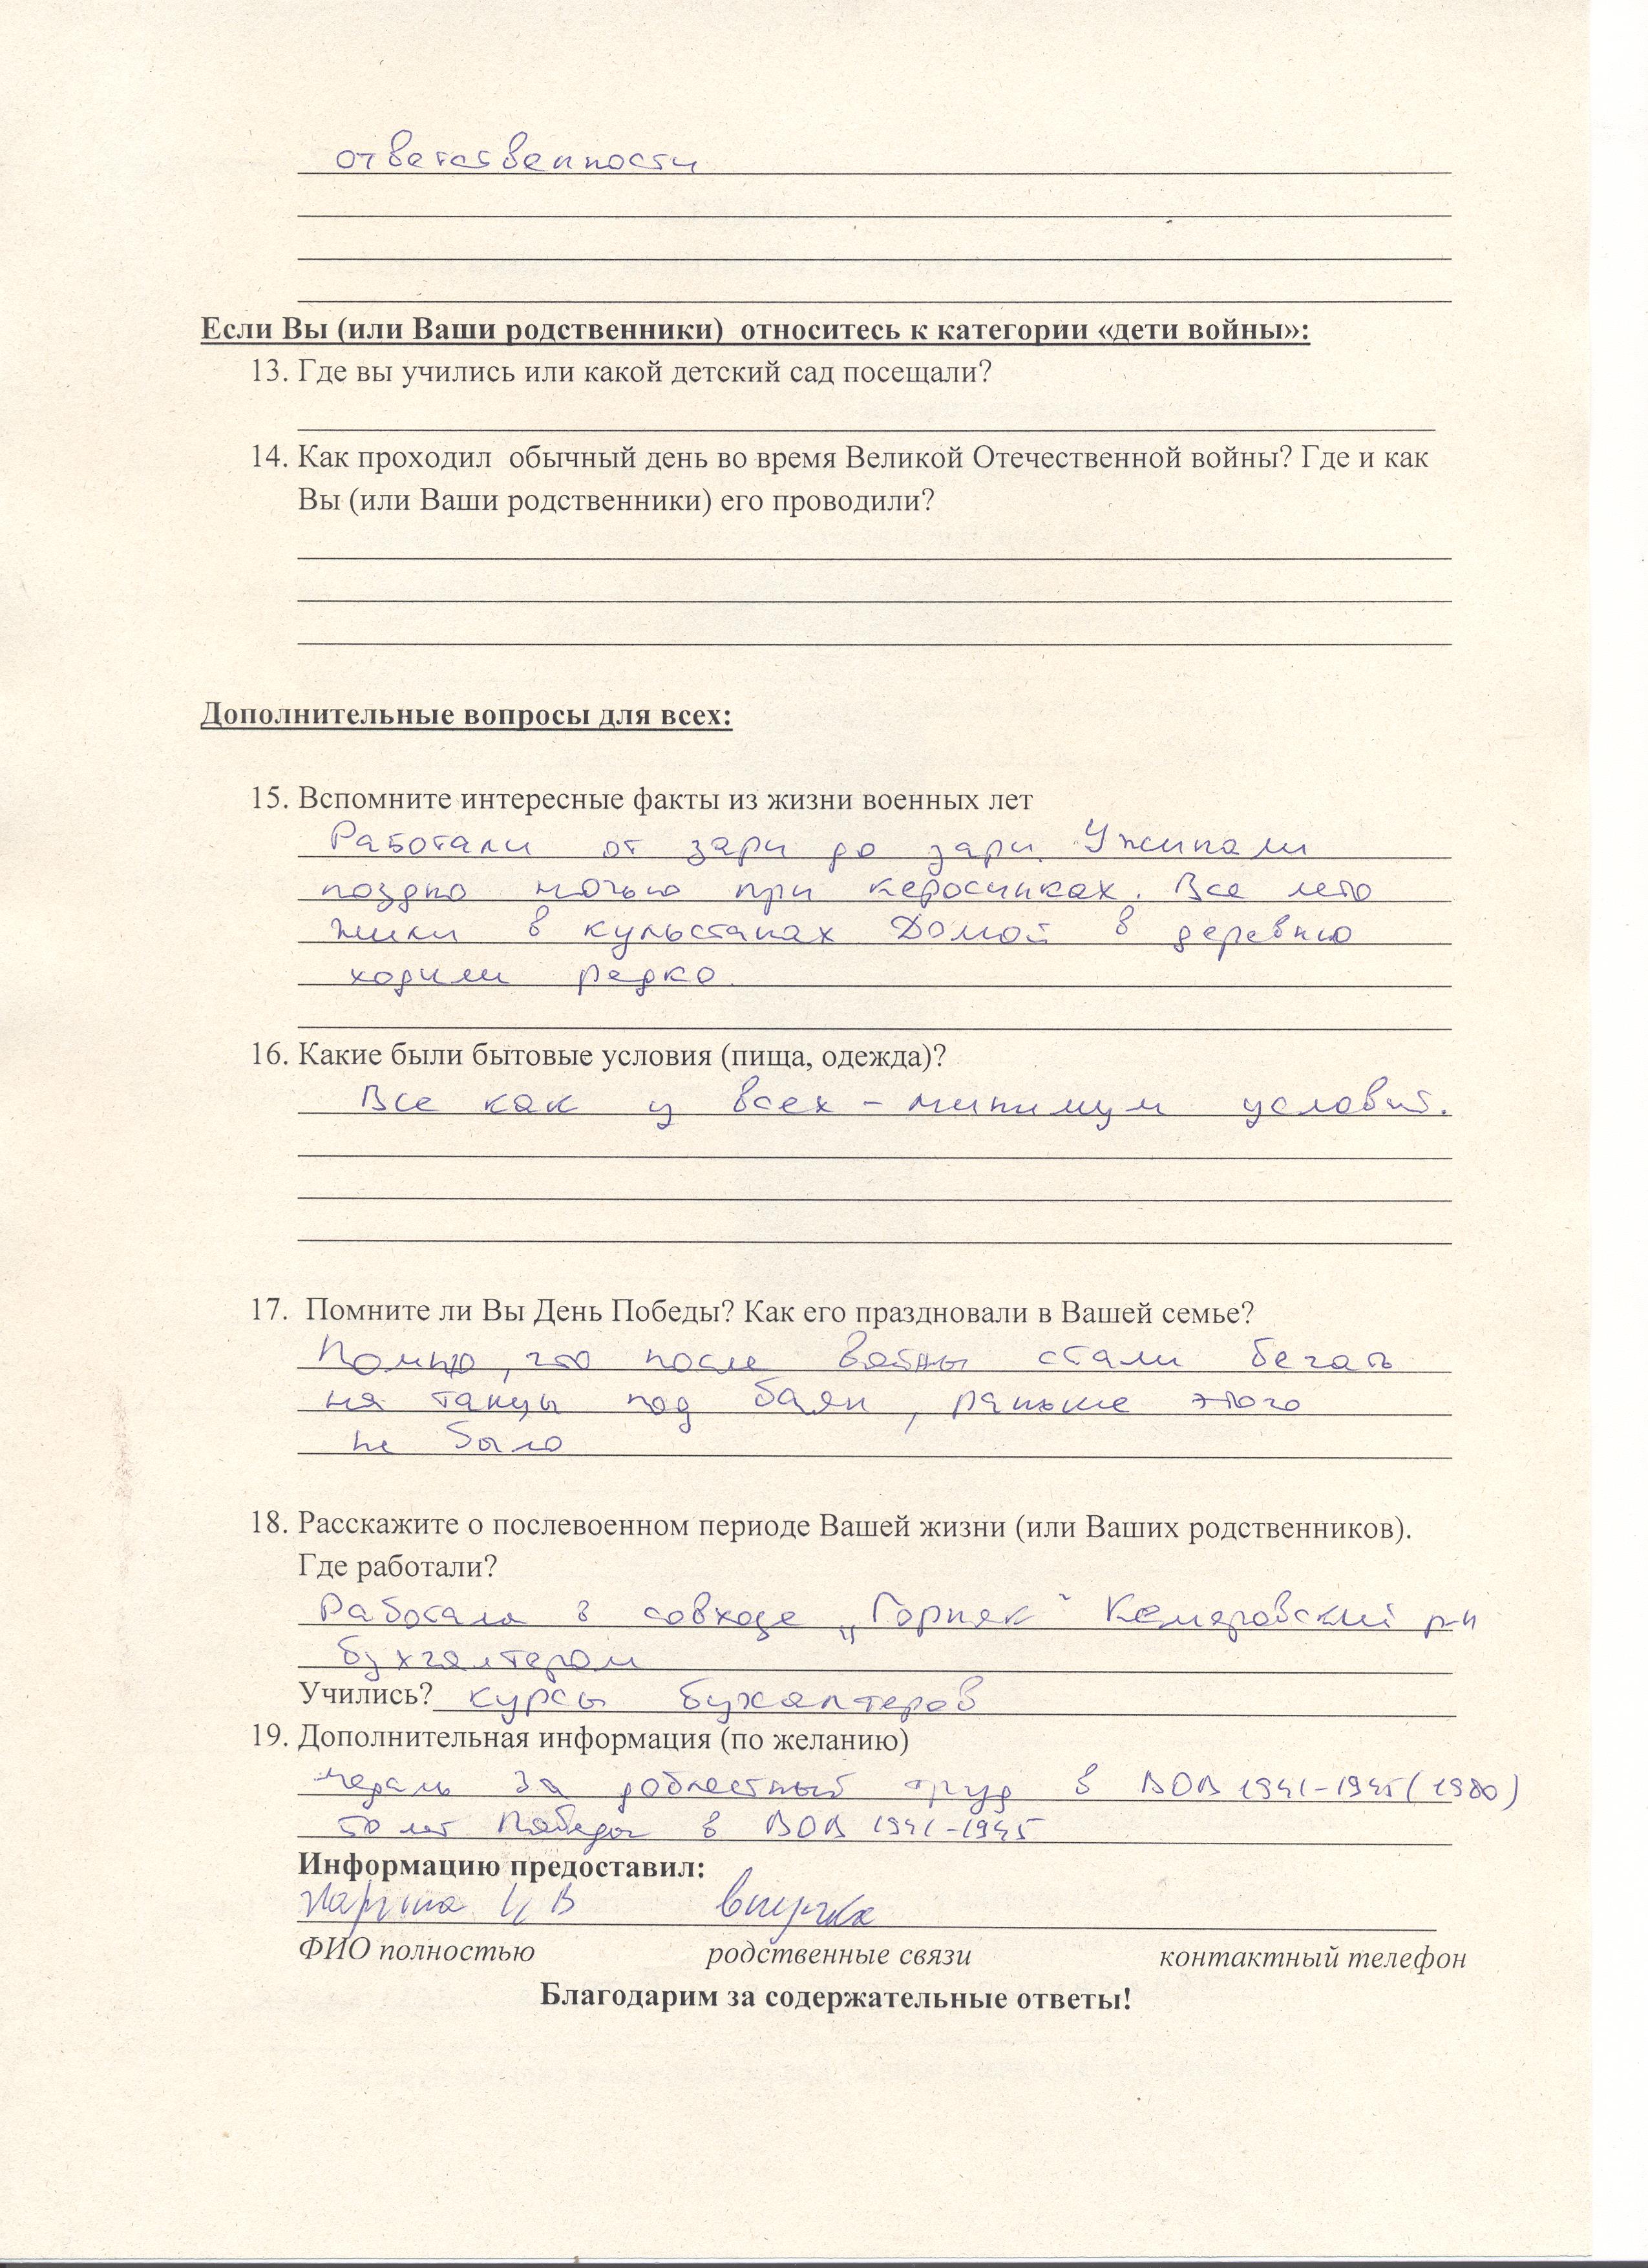 ответственности
Если Вы (или Ваши родственники) относитесь к категории «дети войны»:
13. Где вы учились или какой детский сад посещали?
14. Как проходил обычный день во время Великой Отечественной войны? Где и как
Вы (или Ваши родственники) его проводили?
Дополнительные вопросы для всех:
15. Вспомните интересные факты из жизни военных лет
Работали от зари до зари. Ужинали
поздно ночью при керосинках. Все лето
жили в культстанах Домой в деревню
ходили редко.
16. Какие были бытовые условия (пища, одежда)?
Все как у всех – минимум условий.
17. Помните ли Вы День Победы? Как его праздновали в Вашей семье?
Помню, что после войны стали бегать
на танцы под баян, раньше этого
не было
18. Расскажите о послевоенном периоде Вашей жизни (или Ваших родственников).
Где работали?
Работала в совхозе „Горняк“ Кемеровский р-н
бухгалтером
Учились? курсы бухгалтеров
19. Дополнительная информация (по желанию)
медаль За доблестный труд в ВОВ 1941-1945 (1980)
50 лет Победы в ВОВ 1941-1945
Информацию предоставил:
внучка
ФИО полностью родственные связи контактный телефон
Благодарим за содержательные ответы!